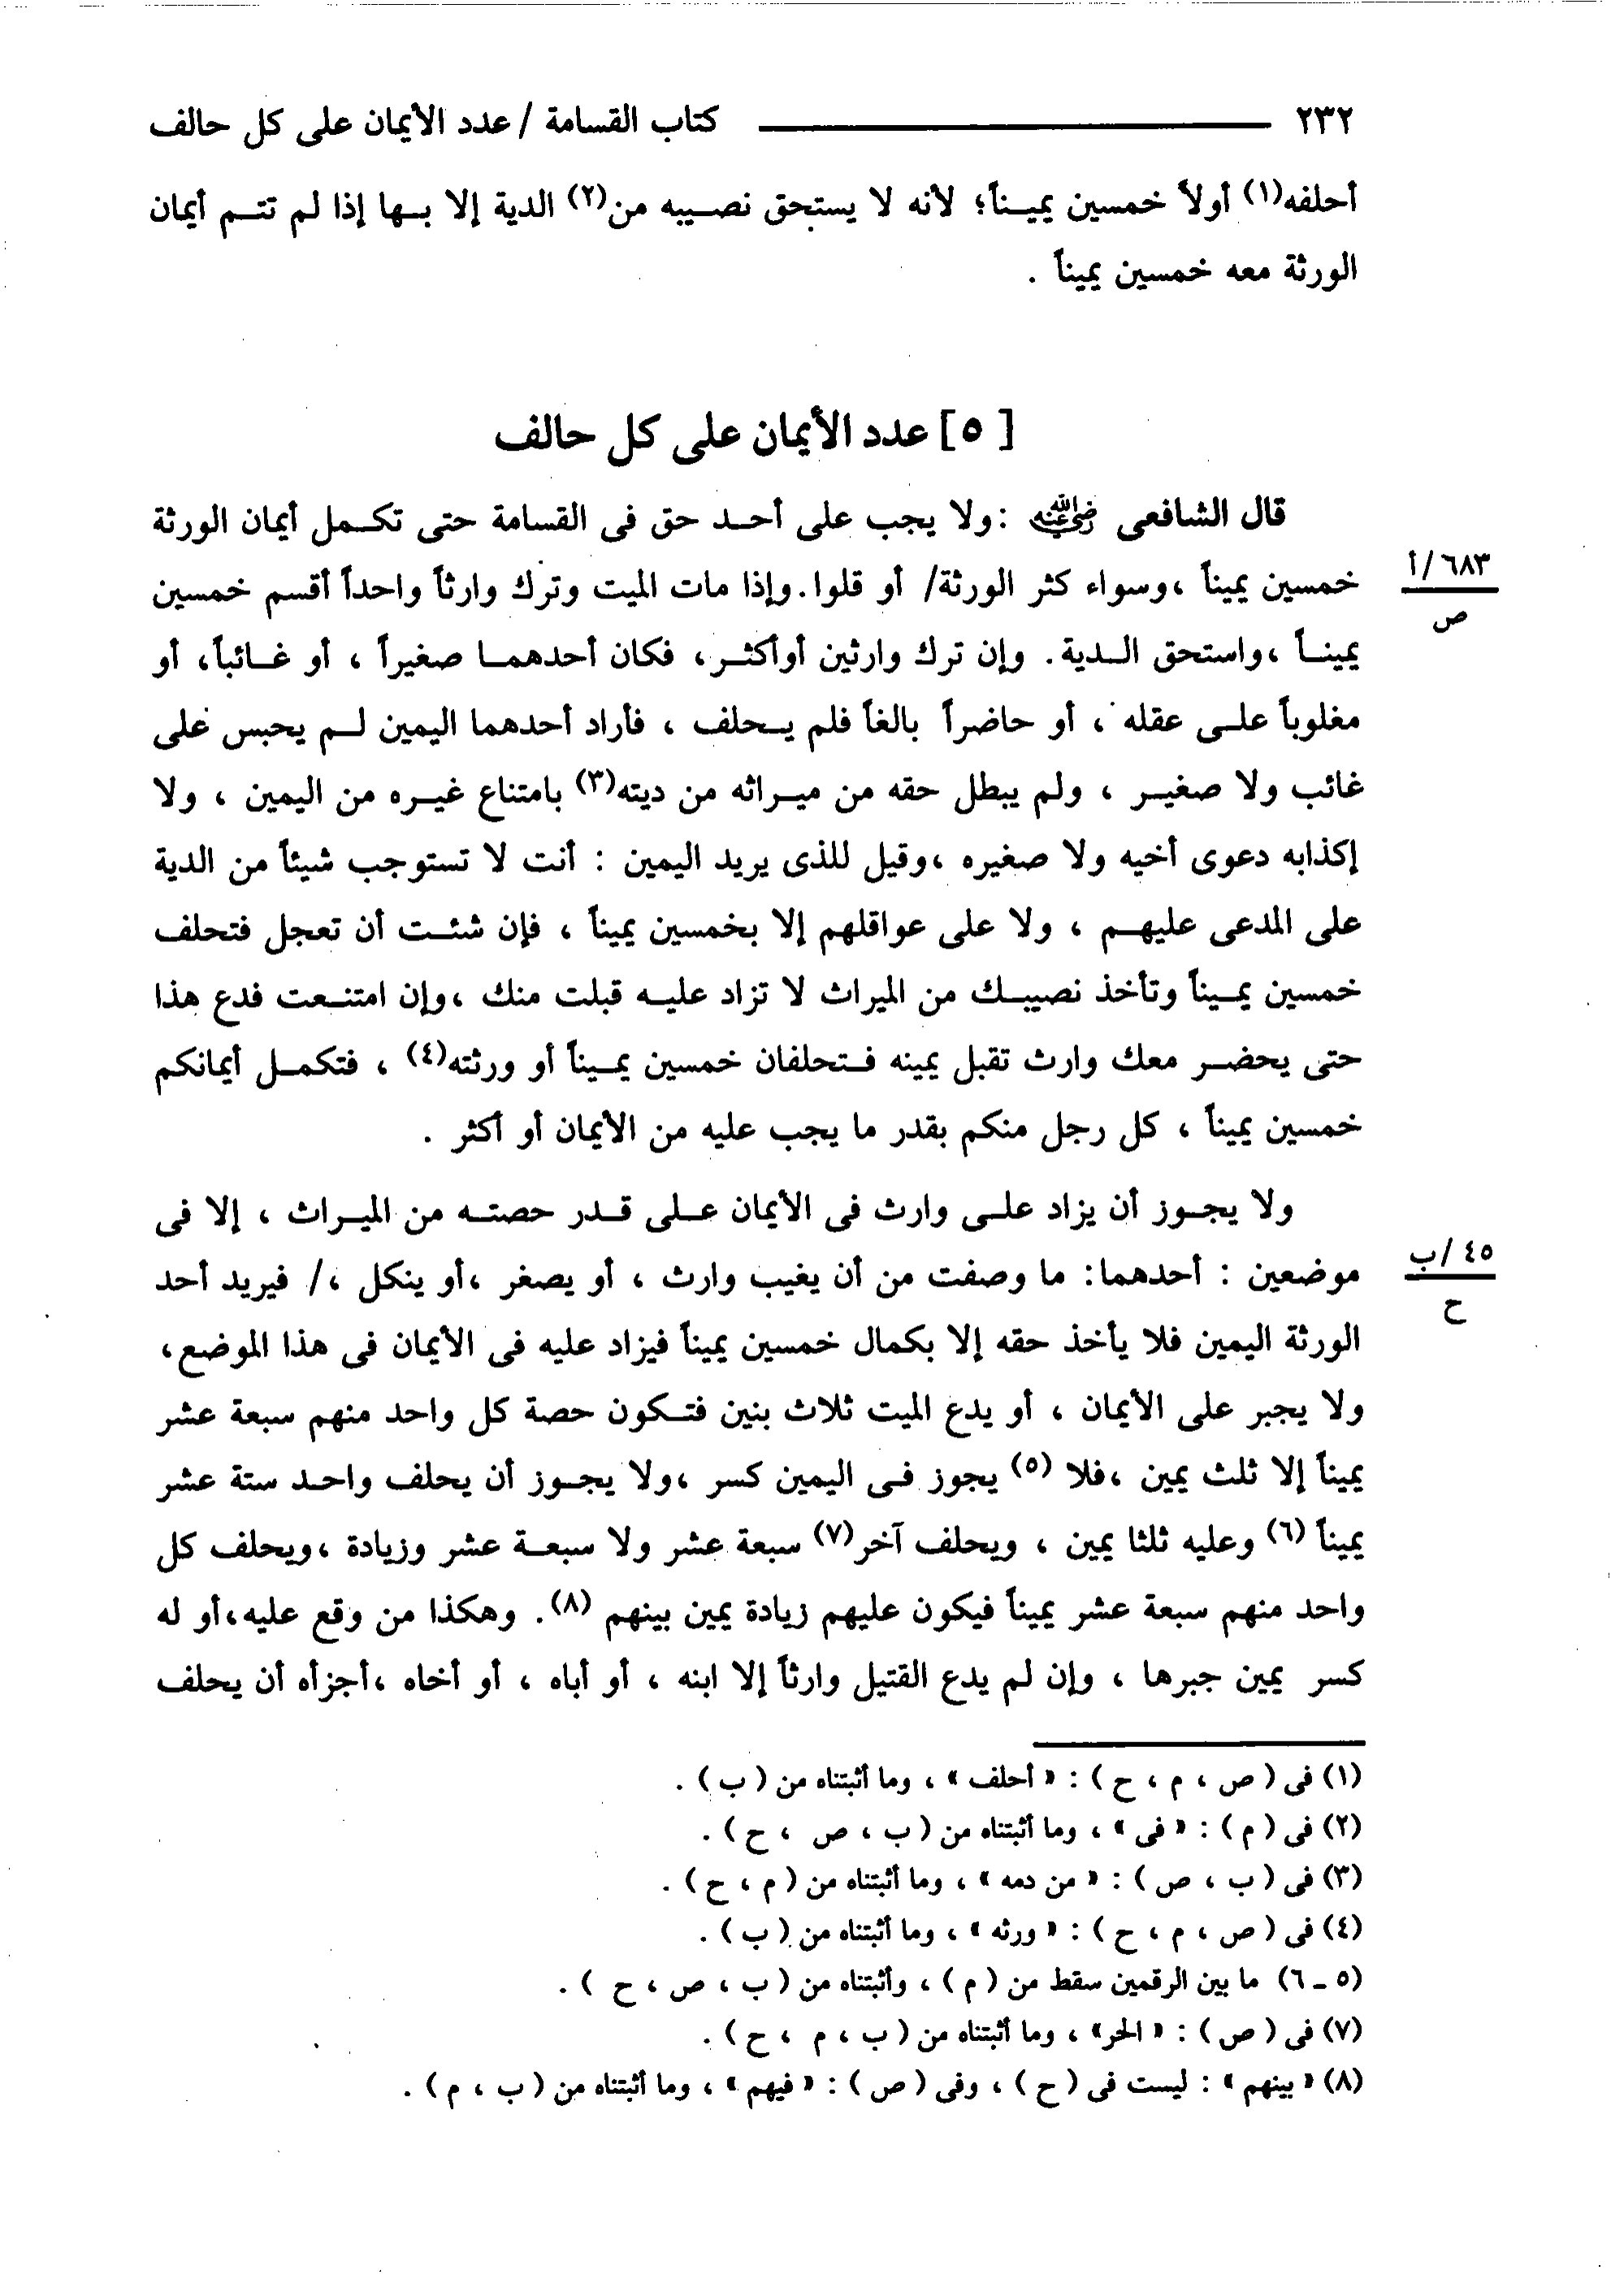 ٢٣٢ كتاب القسامة / عدد الأيمان على كل حالف
أحلفه(١) أولاً خمسين يميناً؛ لأنه لا يستحق نصيبه من(٢) الدية إلا بها إذا لم تتم أيمان
الورثة معه خمسين يميناً .
[ ٥ ] عدد الأيمان على كل حالف
قال الشافعى رضي الله عنه : ولا يجب على أحد حق فى القسامة حتى تكمل أيمان الورثة
خمسين يميناً ،وسواء كثر الورثة/ أو قلوا.وإذا مات الميت وترك وارثاً واحداً أقسم خمسين
٦٨٣ /أ
ص
يميناً ،واستحق الدية. وإن ترك وارثين أوأكثر، فكان أحدهما صغيراً ، أو غائباً، أو
مغلوباً على عقله ، أو حاضراً بالغاً فلم يحلف ، فأراد أحدهما اليمين لم يحبس على
غائب ولا صغير ، ولم يبطل حقه من ميراثه من ديته(٣) بامتناع غيره من اليمين ، ولا
إكذابه دعوى أخيه ولا صغيره ،وقيل للذى يريد اليمين : أنت لا تستوجب شيئاً من الدية
على المدعى عليهم ، ولا على عواقلهم إلا بخمسين يميناً ، فإن شئت أن تعجل فتحلف
خمسين يميناً وتأخذ نصيبك من الميراث لا تزاد عليه قبلت منك ،وإن امتنعت فدع هذا
حتى يحضر معك وارث تقبل يمينه فتحلفان خمسين يميناً أو ورثته(٤) ، فتكمل أيمانكم
خمسين يميناً ، كل رجل منكم بقدر ما يجب عليه من الأيمان أو أكثر .
ولا يجوز أن يزاد على وارث فى الأيمان على قدر حصته من الميراث ، إلا فى
موضعين : أحدهما: ما وصفت من أن يغيب وارث ، أو يصغر ،أو ينكل ،/ فيريد أحد
٤٥ /ب
ح
الورثة اليمين فلا يأخذ حقه إلا بكمال خمسين يميناً فيزاد عليه فى الأيمان فى هذا الموضع،
ولا يجبر على الأيمان ، أو يدع الميت ثلاث بنين فتكون حصة كل واحد منهم سبعة عشر
يميناً إلا ثلث يمين ،فلا (٥) يجوز فى اليمين كسر ،ولا يجوز أن يحلف واحد ستة عشر
يميناً (٦) وعليه ثلثا يمين ، ويحلف آخر(٧) سبعة عشر ولا سبعة عشر وزيادة ،ويحلف كل
واحد منهم سبعة عشر يميناً فيكون عليهم زيادة يمين بينهم (٨). وهكذا من وقع عليه،أو له
كسر يمين جبرها ، وإن لم يدع القتيل وارثاً إلا ابنه ، أو أباه ، أو أخاه ،أجزأه أن يحلف
(١) فى ( ص ، م ، ح ) : « أحلف » ، وما أثبتناه من ( ب ) .
(٢) فى ( م ) : « فى » ، وما أثبتناه من ( ب ، ص ، ح ) .
(٣) فى ( ب ، ص ) : « من دمه » ، وما أثبتناه من ( م ، ح ) .
(٤) فى ( ص ، م ، ح ) : « ورثه » ، وما أثبتناه من ( ب ) .
(٥ ـ ٦) ما بين الرقمين سقط من ( م ) ، وأثبتناه من ( ب ، ص ، ح ) .
(٧) فى ( ص ) : « الحر» ، وما أثبتناه من ( ب ، م ، ح ) .
(٨) « بينهم » : ليست فى ( ح ) ، وفى ( ص ) : « فيهم » ، وما أثبتناه من ( ب ، م ) .